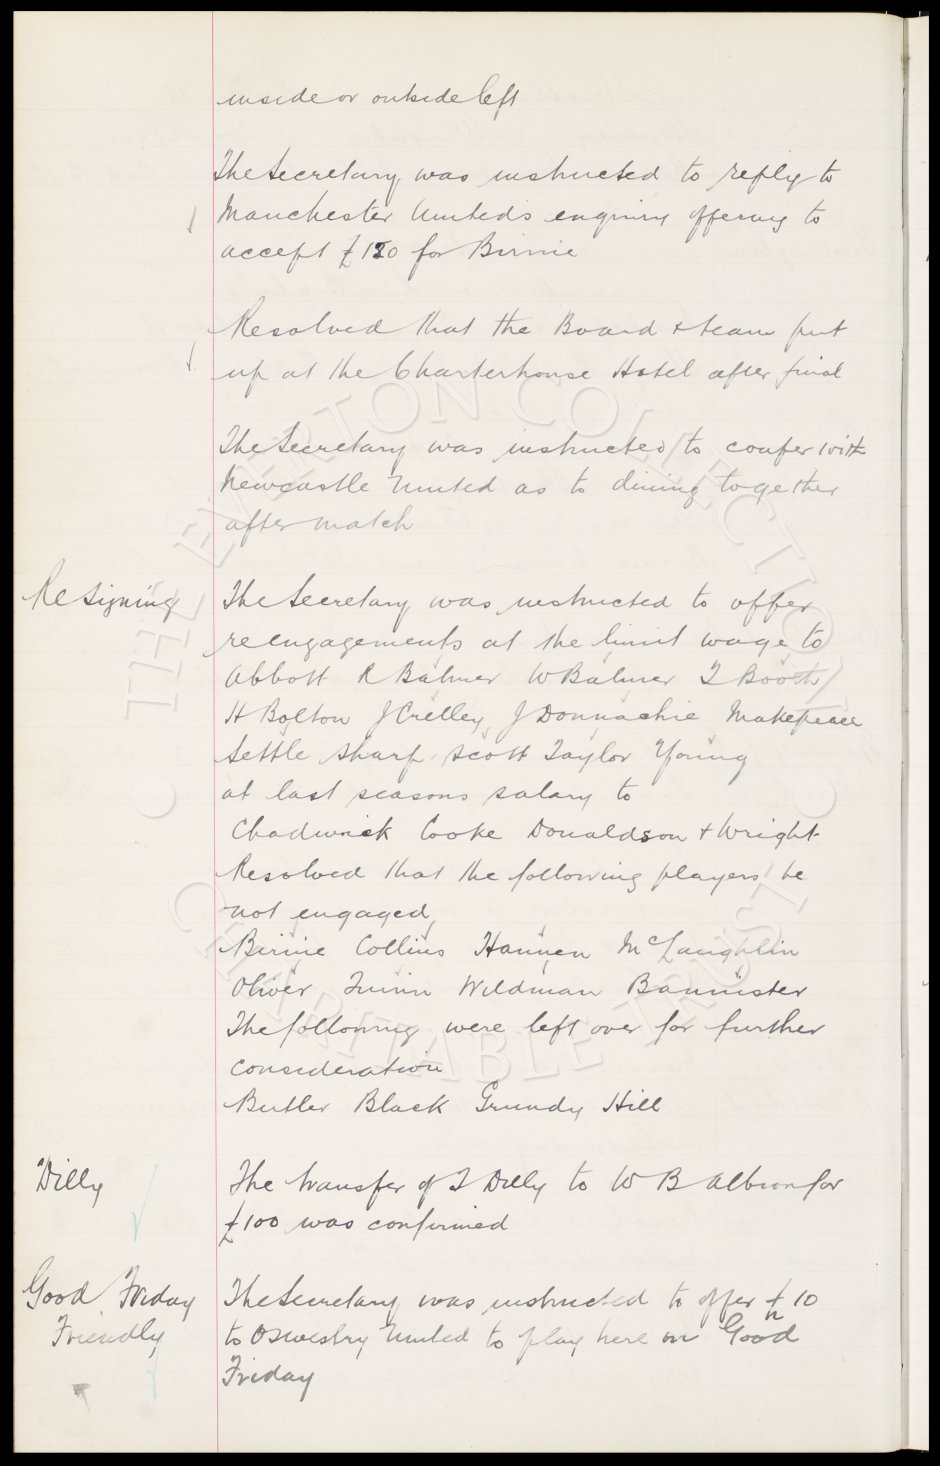 inside or outside left
The Secretary was instructed to reply to
Manchester United's enquiry offering to
accept £120 for Birnie
Resolved that the Board & team put
up at the Charterhouse Hotel after final
The Secretary was instructed to confer with
Newcastle United as to dining together
after match
Re Signing
The Secretary was instructed to offer
reengagements at the limit wage to
Abbott R Balmer W Balmer T Booth
H Bolton J Crelley J Donnachie Makepeace
Settle Sharp Scott Taylor Young
at last seasons salary to
Chadwick Cooke Donaldson & Wright
Resolved that the following players be
not engaged
Birnie Collins Hannen McLaughlin
Oliver Quinn Wildman Bannister
The following were left over for further
consideration
Butler Black Grundy Hill
Dilly
The transfer of T Dilly to W B Albion for
£100 was confirmed
Good Friday
Friendly
The Secretary was instructed to offer £10
to Oswestry United to play here on Good
Friday
THE EVERTON COLLECTION
CHARITABLE TRUST